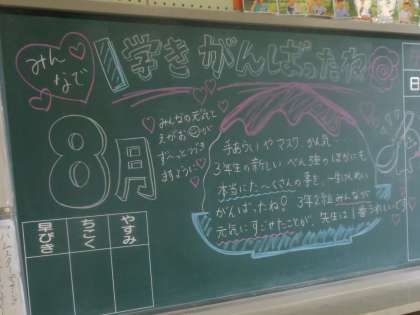 みんなで
1学きがんばったね
8月
みんなの元気と
えがお が
ずーっとつづき
ますように
手あらいやマスク、かん気
3年生の新しいべん強のほかにも
本当にた〜くさんの事を、一生けんめい
がんばったね! 3年2組みんなが
元気にすごせたことが、先生は1番うれしいです
日
やすみ
ちこく
早びき